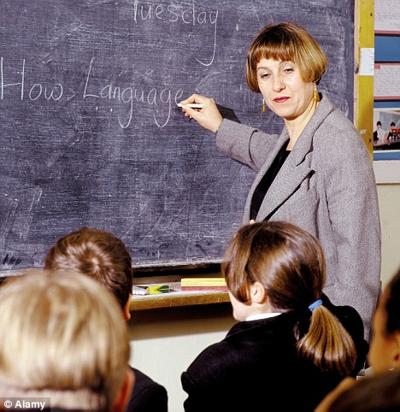 Tuesday
How Language
© Alamy